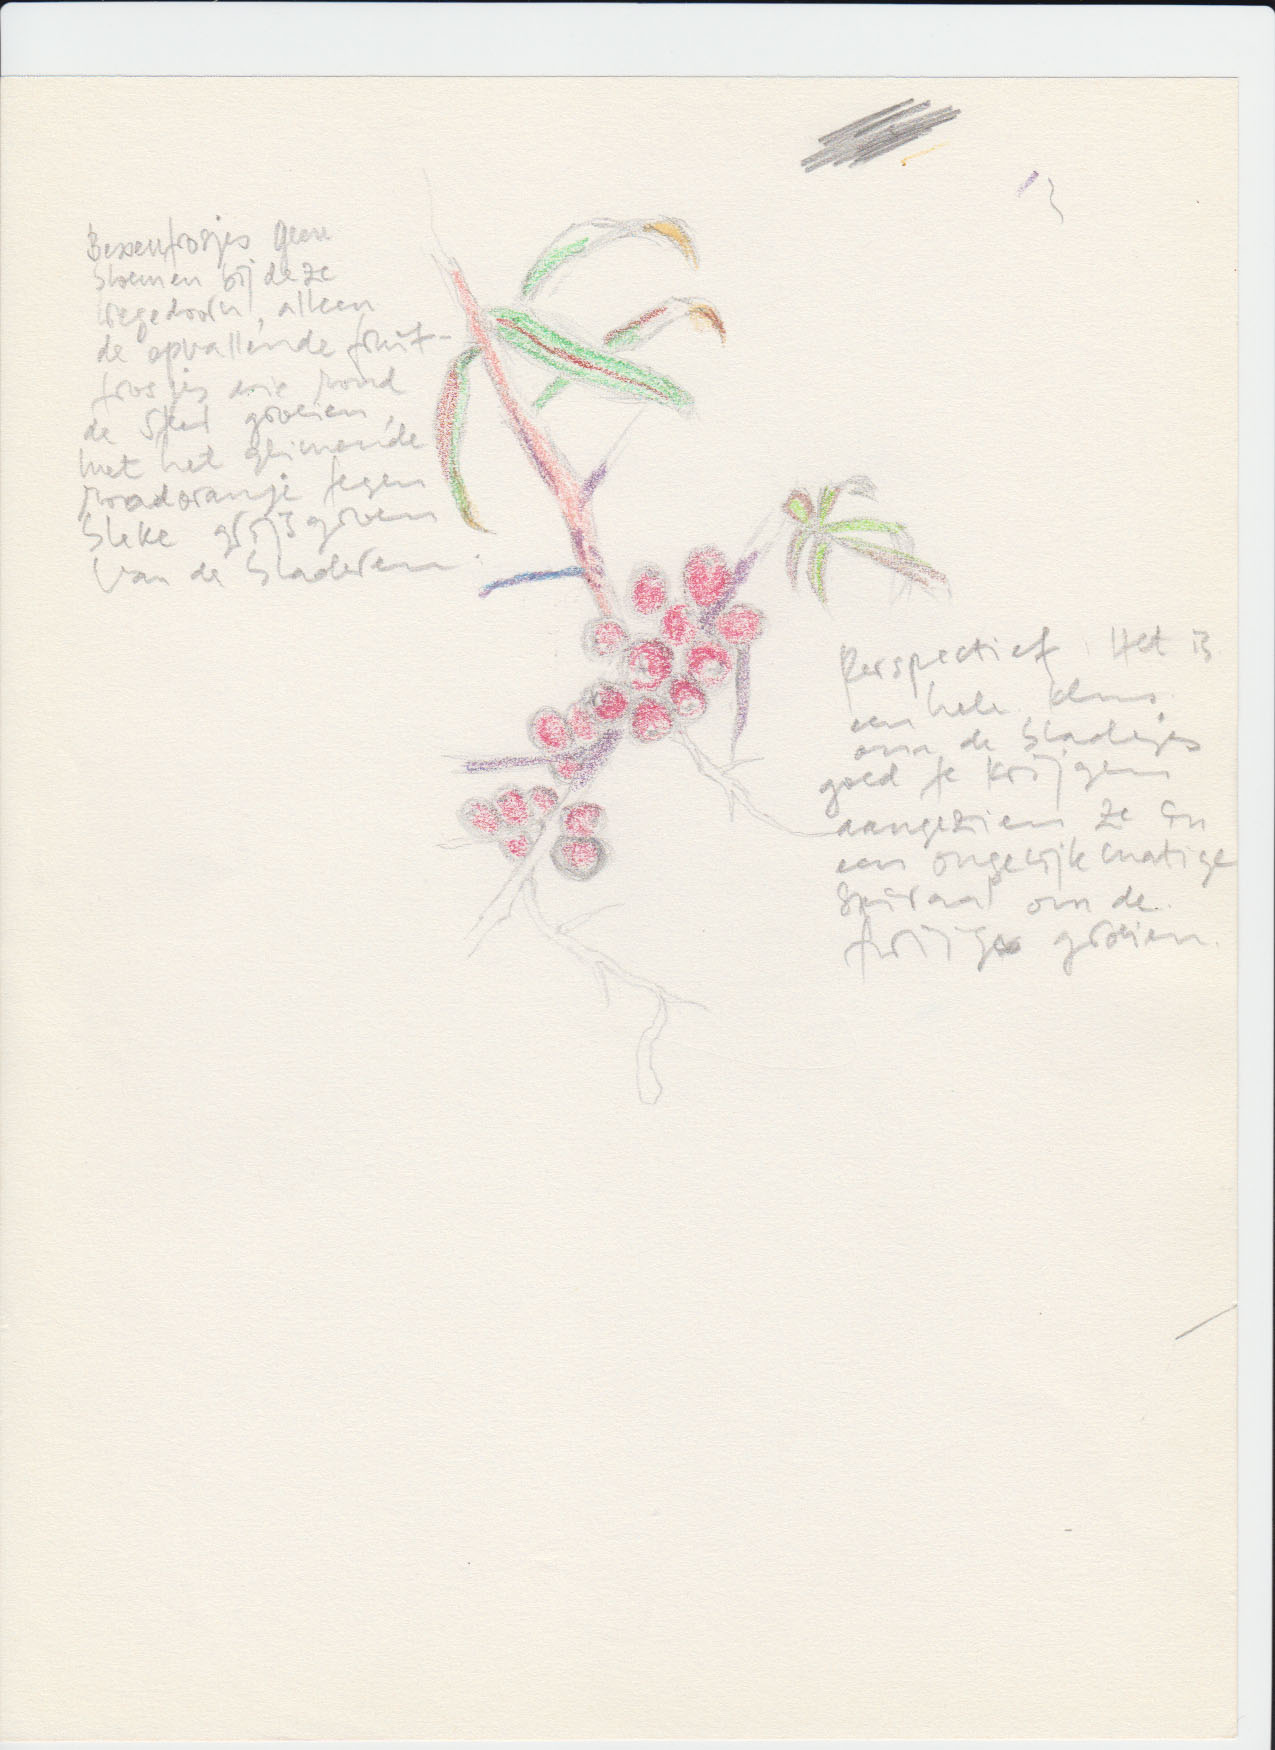 Bessentrosjes Geen
bloemen bij deze
wegedoorn, alleen
de opvallende fruit-
trosjes die rond
de steel groeien,
met het glimmende
roodoranje tegen
bleke grijsgroen
van de bladeren.
Perspectief. Het is
een hele klus
om de blaadjes
goed te krijgen
aangezien ze in
een ongelijkmatige
spiraal om de
groeien.